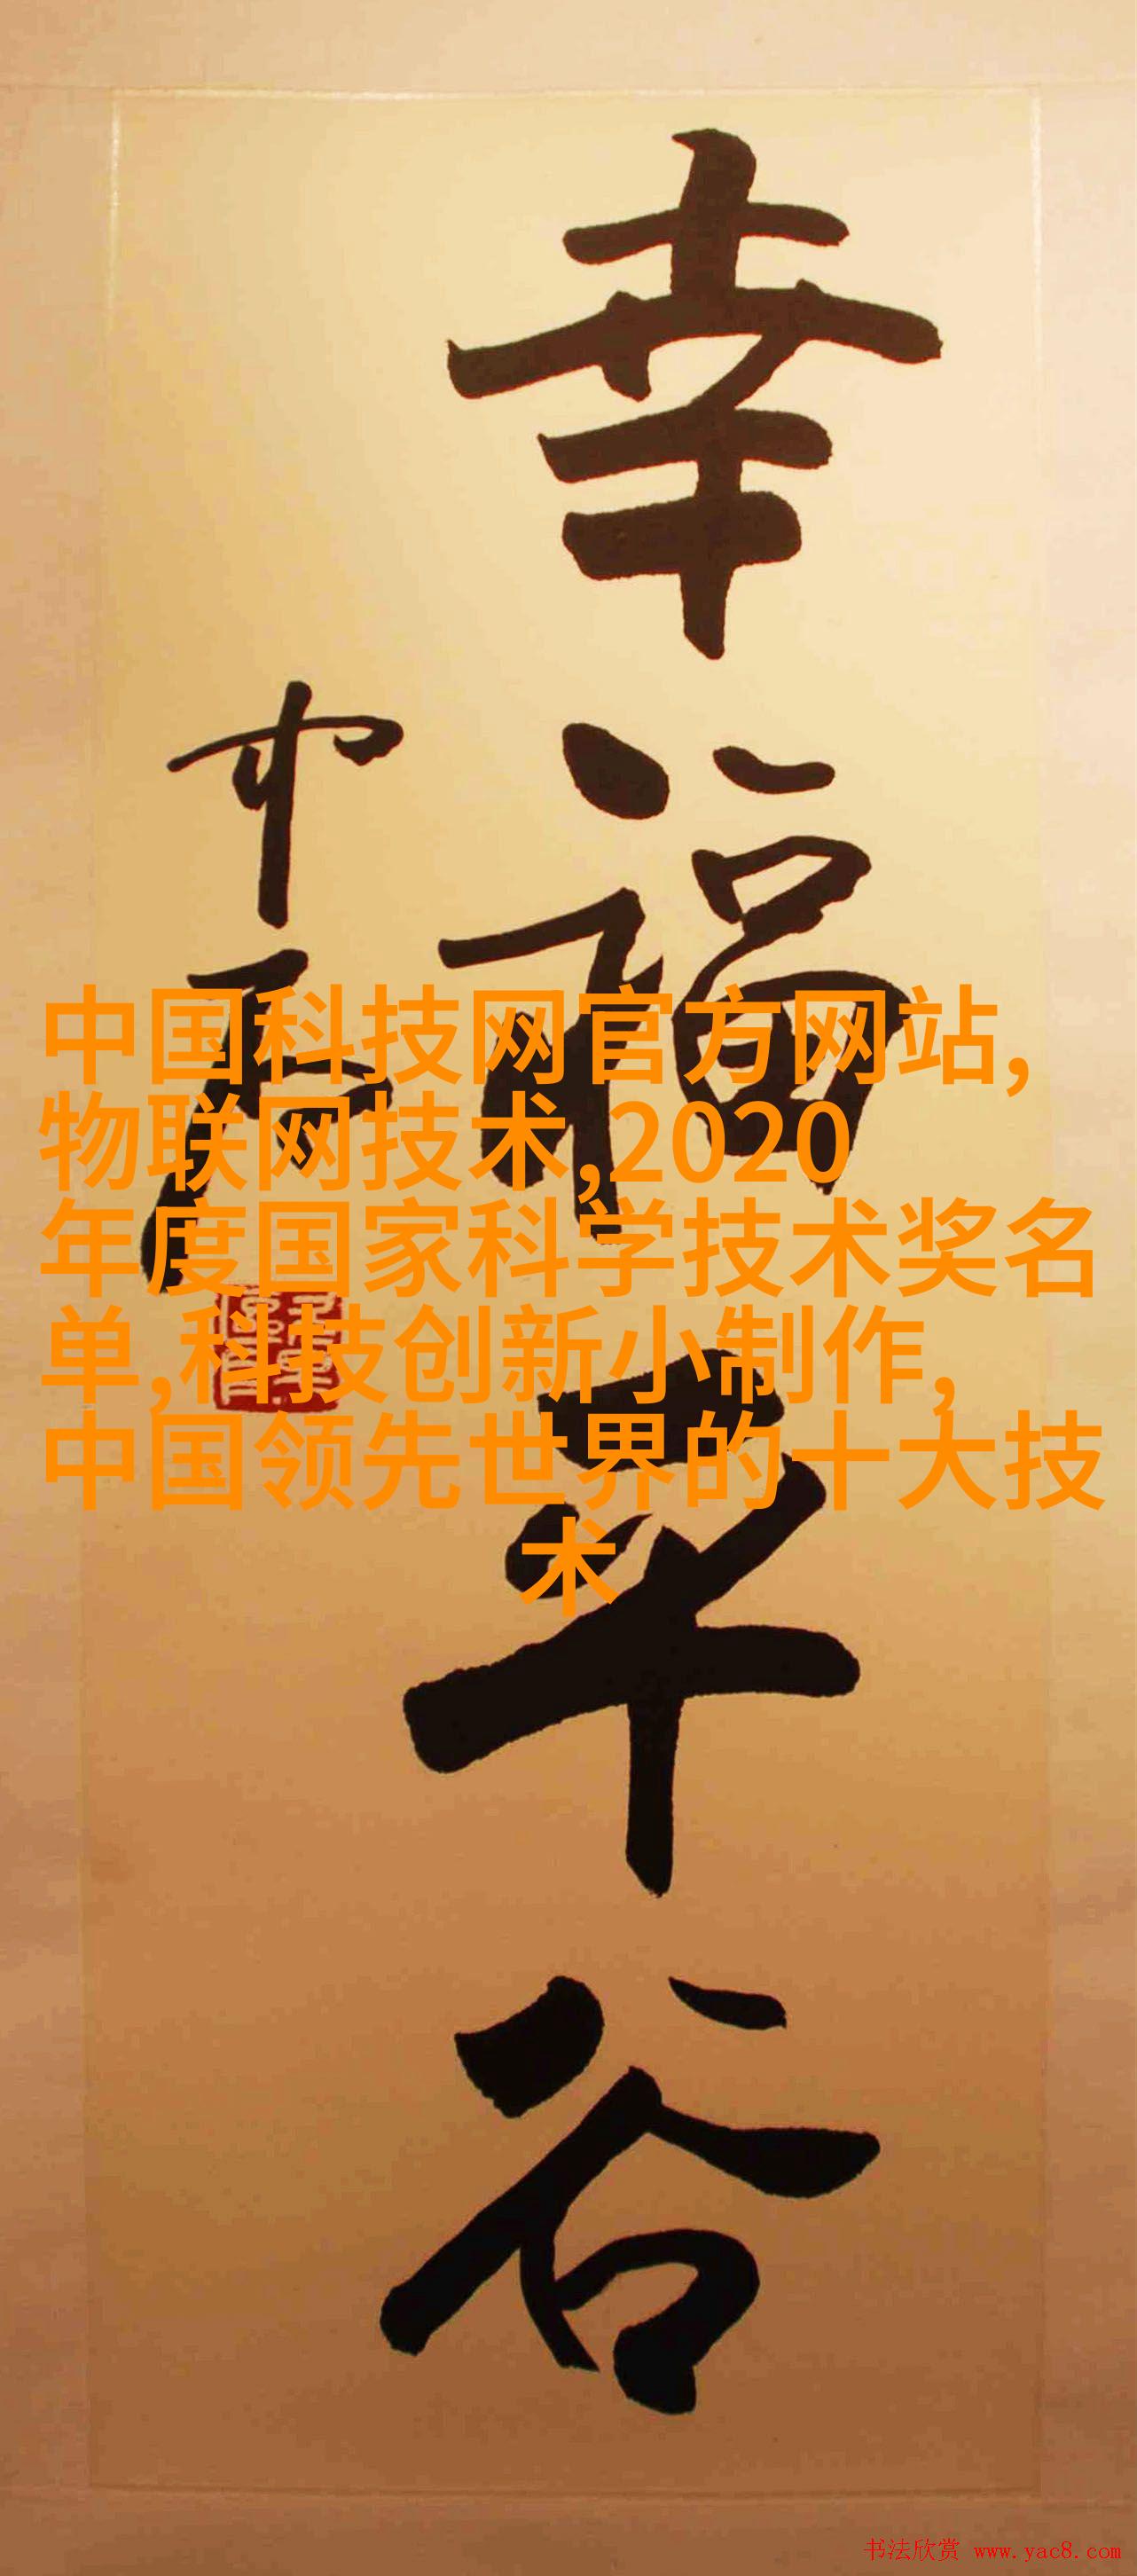 幸福平谷
中石
中国科技网官方网站,
物联网技术,2020
年度国家科学技术奖名
单,科技创新小制作,
中国领先世界的十大技
术
书法欣赏 www.yac8.com